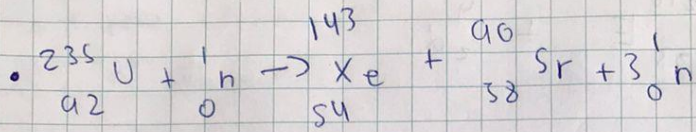 • ²³⁵₉₂U + ¹₀n → ¹⁴³₅₄Xe + ⁹⁰₃₈Sr + 3¹₀n